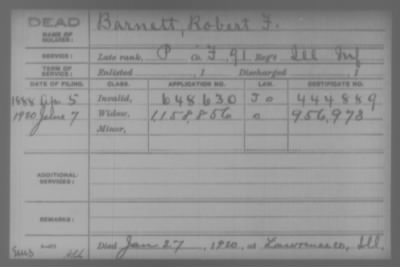 DEAD Barnett, Robert F.
NAME OF SOLDIER:
SERVICE: Late rank, P Co. F, 91 Reg't Ill Inf
TERM OF SERVICE: Enlisted , 1 Discharged , 1
DATE OF FILING. CLASS. APPLICATION NO. LAW. CERTIFICATE NO.
1888 Ap. 5 Invalid, 648630 444889
1920 June 7 Widow, 1,158,856 956,973
Minor,
ADDITIONAL SERVICES:
REMARKS:
Died Jan 27, 1920, at Ill.